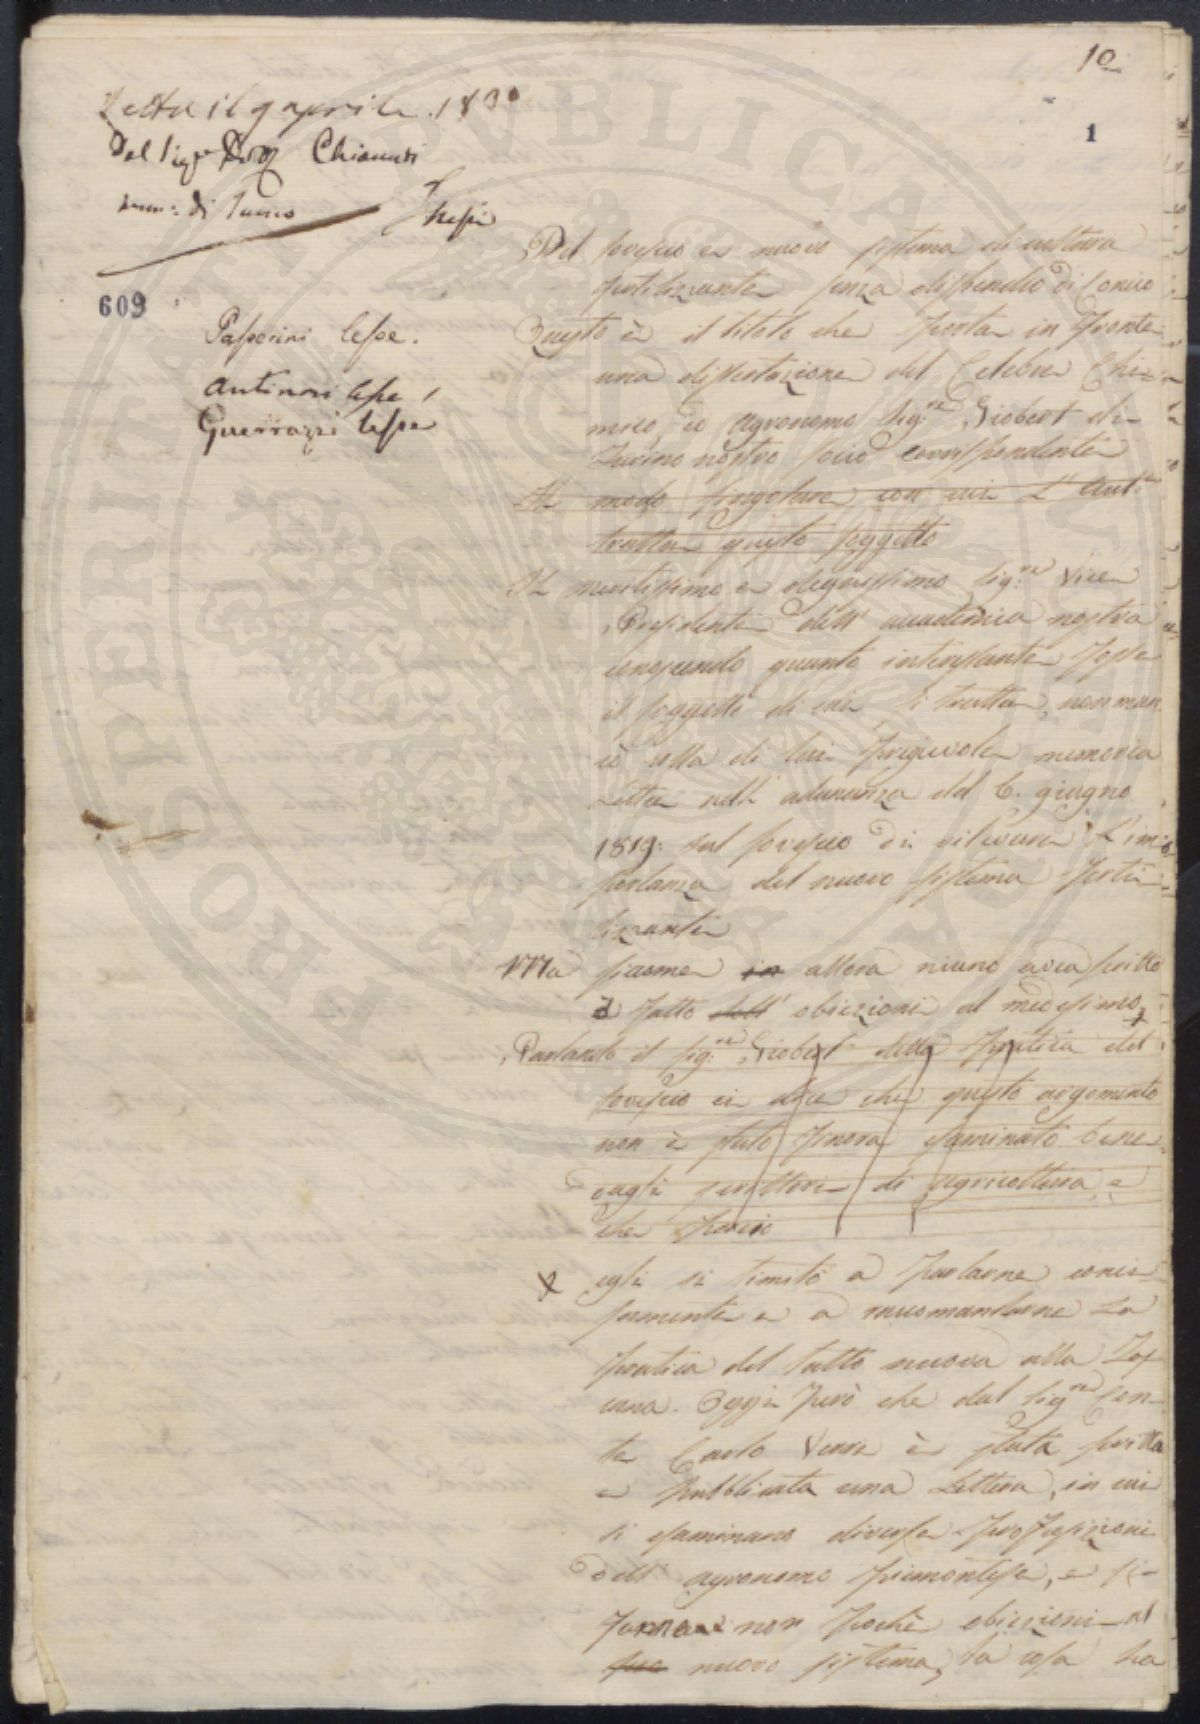 10
1
Letta il 9 aprile 1830
Dal Sigr Dog Chiarusi
di Tunno
Thesi
609
Passerini lesse.
Antinori lesse
Guerrazzi lesse
Del sovescio e nuovo sistema di cultura
fertilizzante senza dispendio di concio
Questo è il titolo che porta in fronte
una dissertazione del Celebre Chi-
mico, ed agronomo Sig.re Giobert di
Turino nostro socio corrispondente
Il modo singolare con cui L'Aut.e
tratta questo soggetto
Il meritissimo e degnissimo Sig.re Vice
Presidente dell' accademia nostra
conoscendo quanto interessante fosse
il soggetto di cui si tratta, non man
cò nella di lui pregievole memoria
Letta nell' adunanza del 6. giugno
1819. sul sovescio di rilevare L'im-
portanza del nuovo sistema ferti-
lizzante
Ma siccome in allora niuno avea scritto
e fatto dell' obiezioni al medesimo
Parlando il Sig.re Giobert della pratica del
sovescio ci dice che questo argomento
non è stato finora esaminato bene
dagli scrittori di agricoltura, e
che
egli si limitò a parlarne conci-
samente e a raccomandarne La
pratica del tutto nuova alla Tos
cana. Oggi però che dal Sig.re Con-
te Carlo Verri è stata scritta
e pubblicata una Lettera, in cui
si esaminano diverse proposizioni
dell' agronomo piemontese, e si
fanno non poche obiezioni al
suo nuovo sistema, la cosa ha